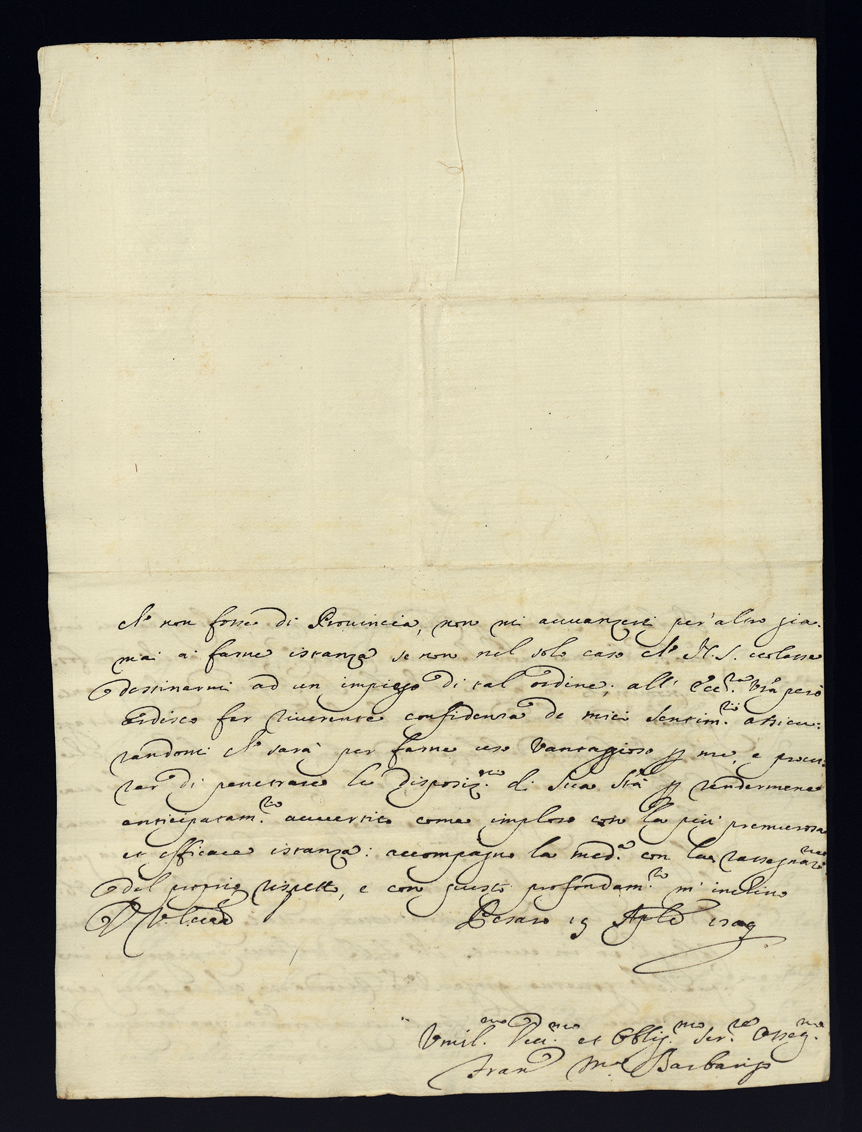 che non fosse di Provincia, non mi avvanzerei per altro gia-
mai a' farne istanza se non nel solo caso che N. S. volesse
destinarmi ad un impiego di tal ordine; all' Ecc.za Vra però
ardisco far riverente confidenza de miei sentim.ti assicu-
randomi che sarà per farne uso vantaggioso p me, e procu-
rar di penetrare le disposiz.ne di Sua Stà p rendermene
anticipatam.te avvertito come imploro con la più premurosa
et efficace istanza: accompagno la med.a con la rassegnaz.ne
del proprio rispetto, e con questo profondam.te m' inchino
Pesaro 15 Aple
Umil.mo Dev.mo et Oblig.mo Ser.re Osseq.mo
Fran.co M.a Barbarigo